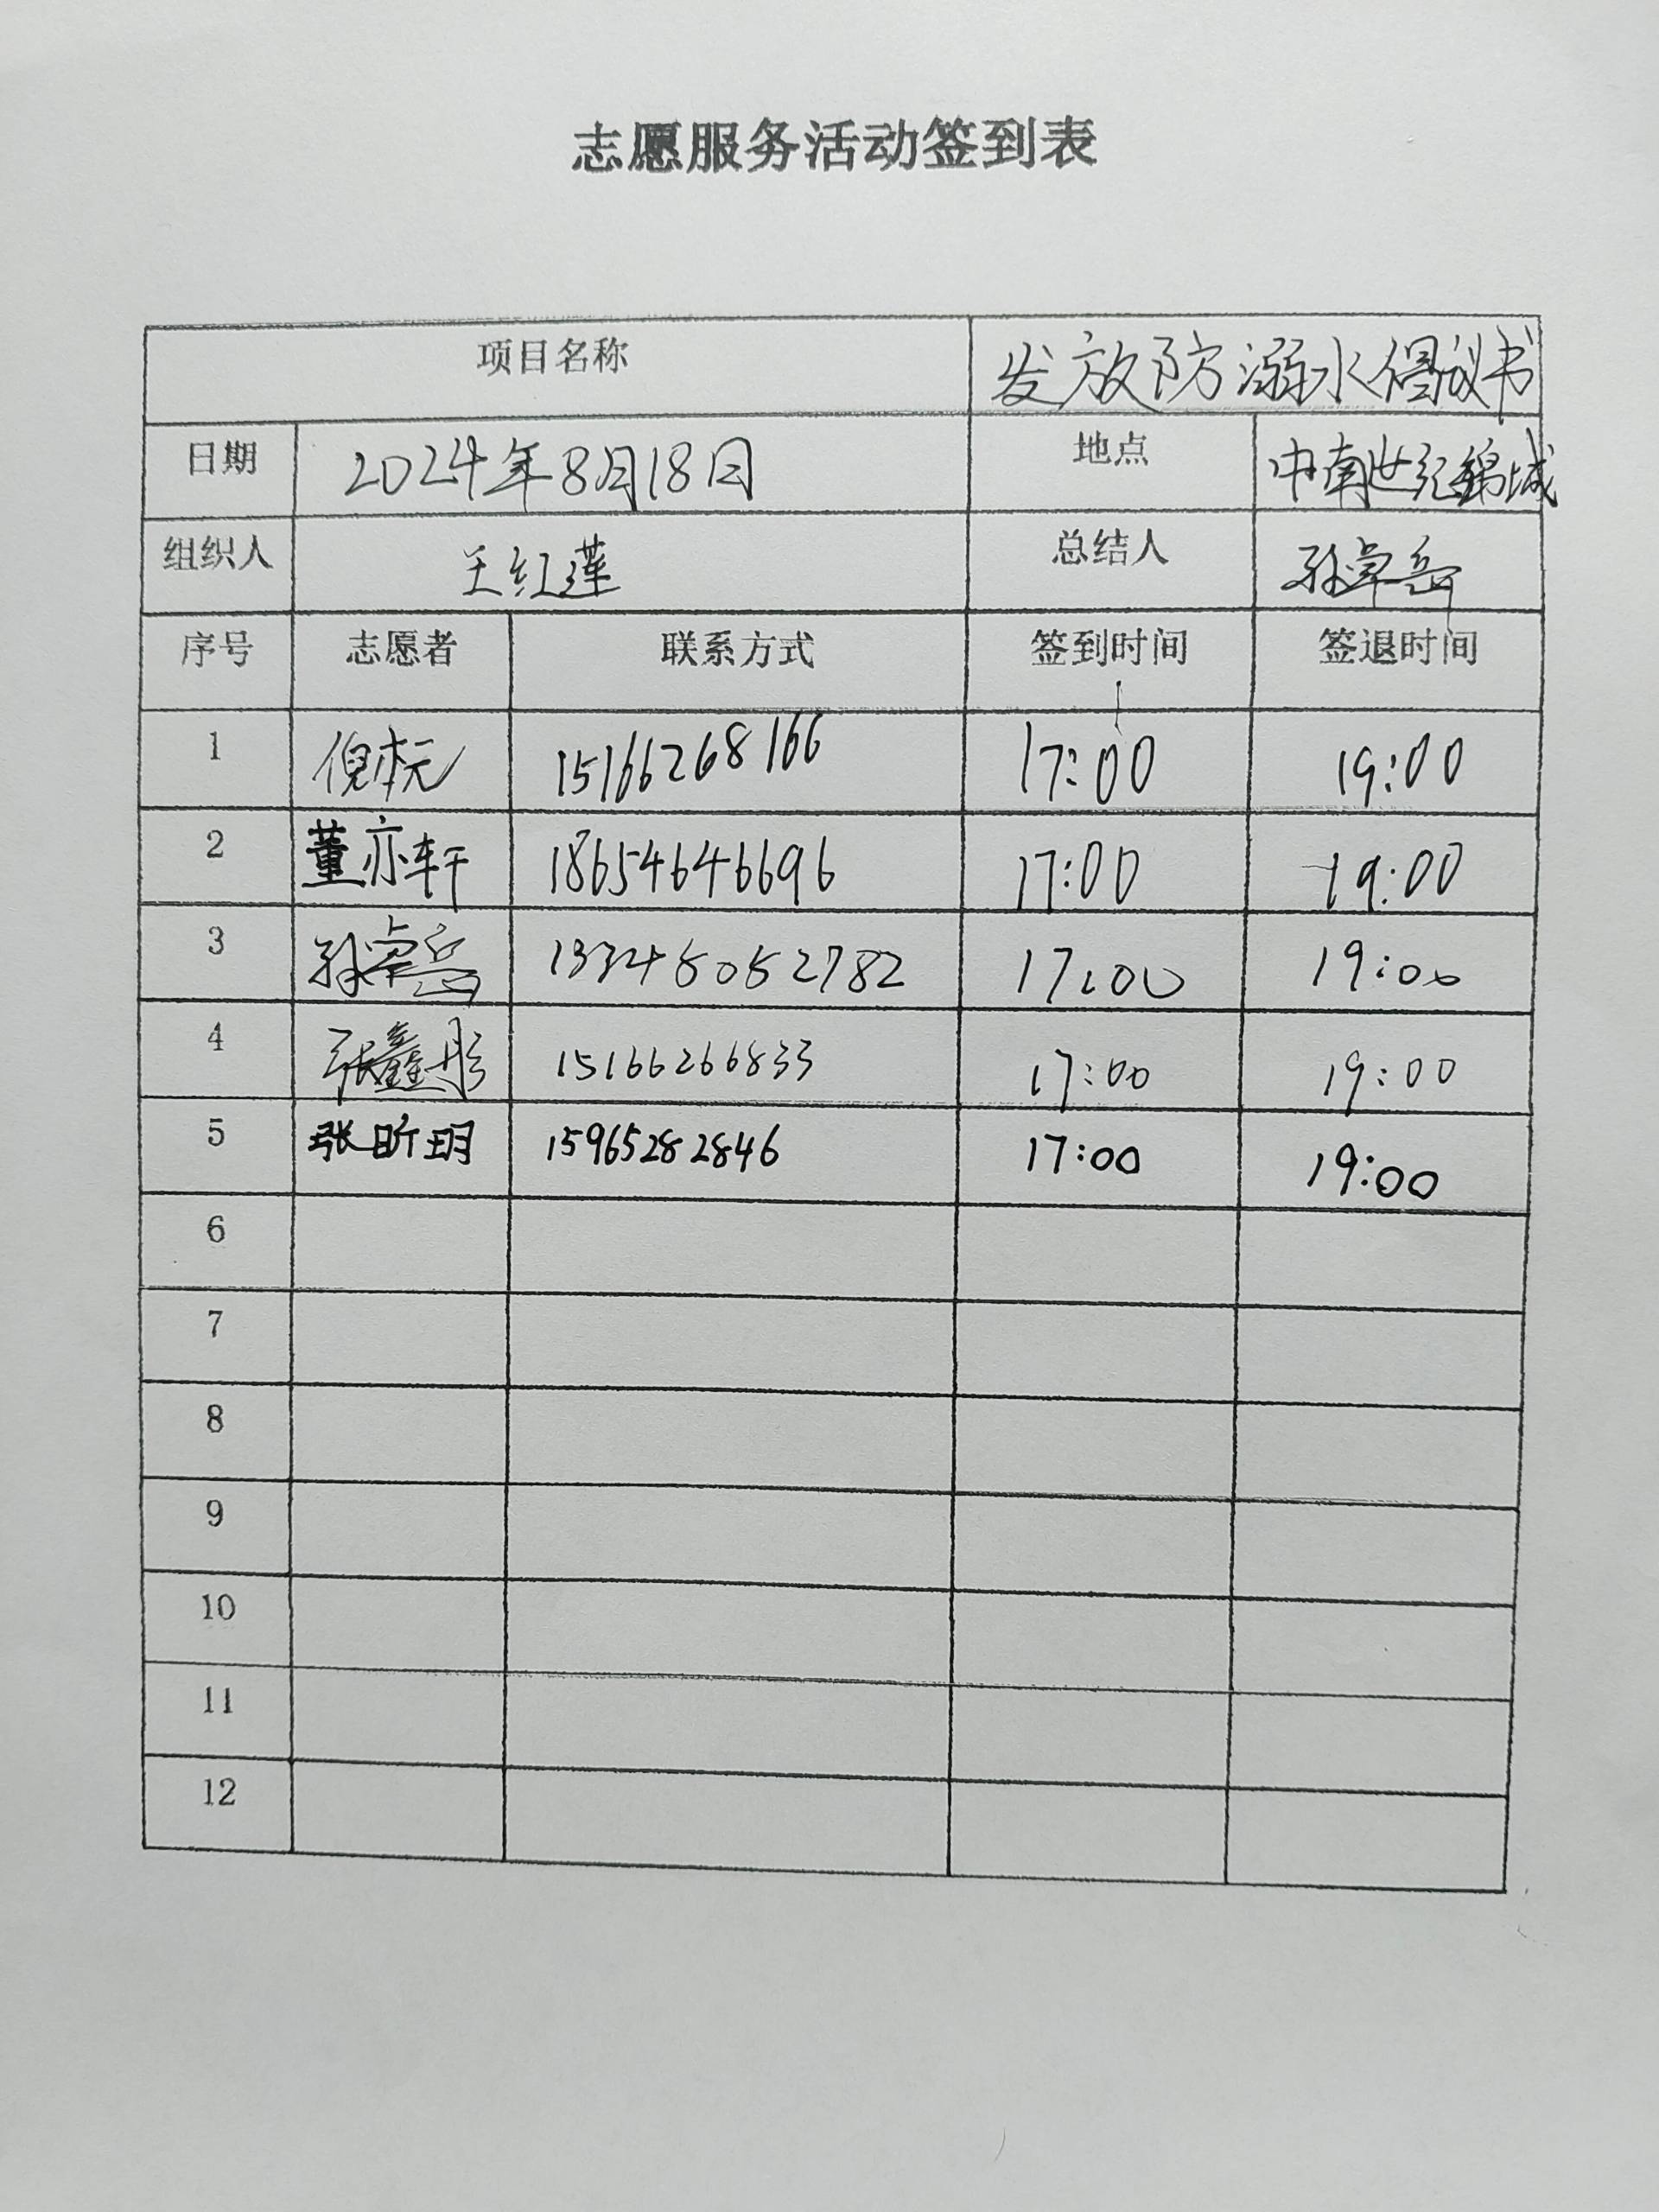 志愿服务活动签到表
项目名称 发放防溺水倡议书
日期 2024年8月18日 地点 中南世纪锦城
组织人 王红莲 总结人 孙卓岳
序号 志愿者 联系方式 签到时间 签退时间
1 倪本元 15166268166 17:00 19:00
2 董亦轩 18654646696 17:00 19:00
3 孙卓岳 13345052782 17:00 19:00
4 张鑫彤 15166266833 17:00 19:00
5 张昕玥 15965282846 17:00 19:00
6
7
8
9
10
11
12